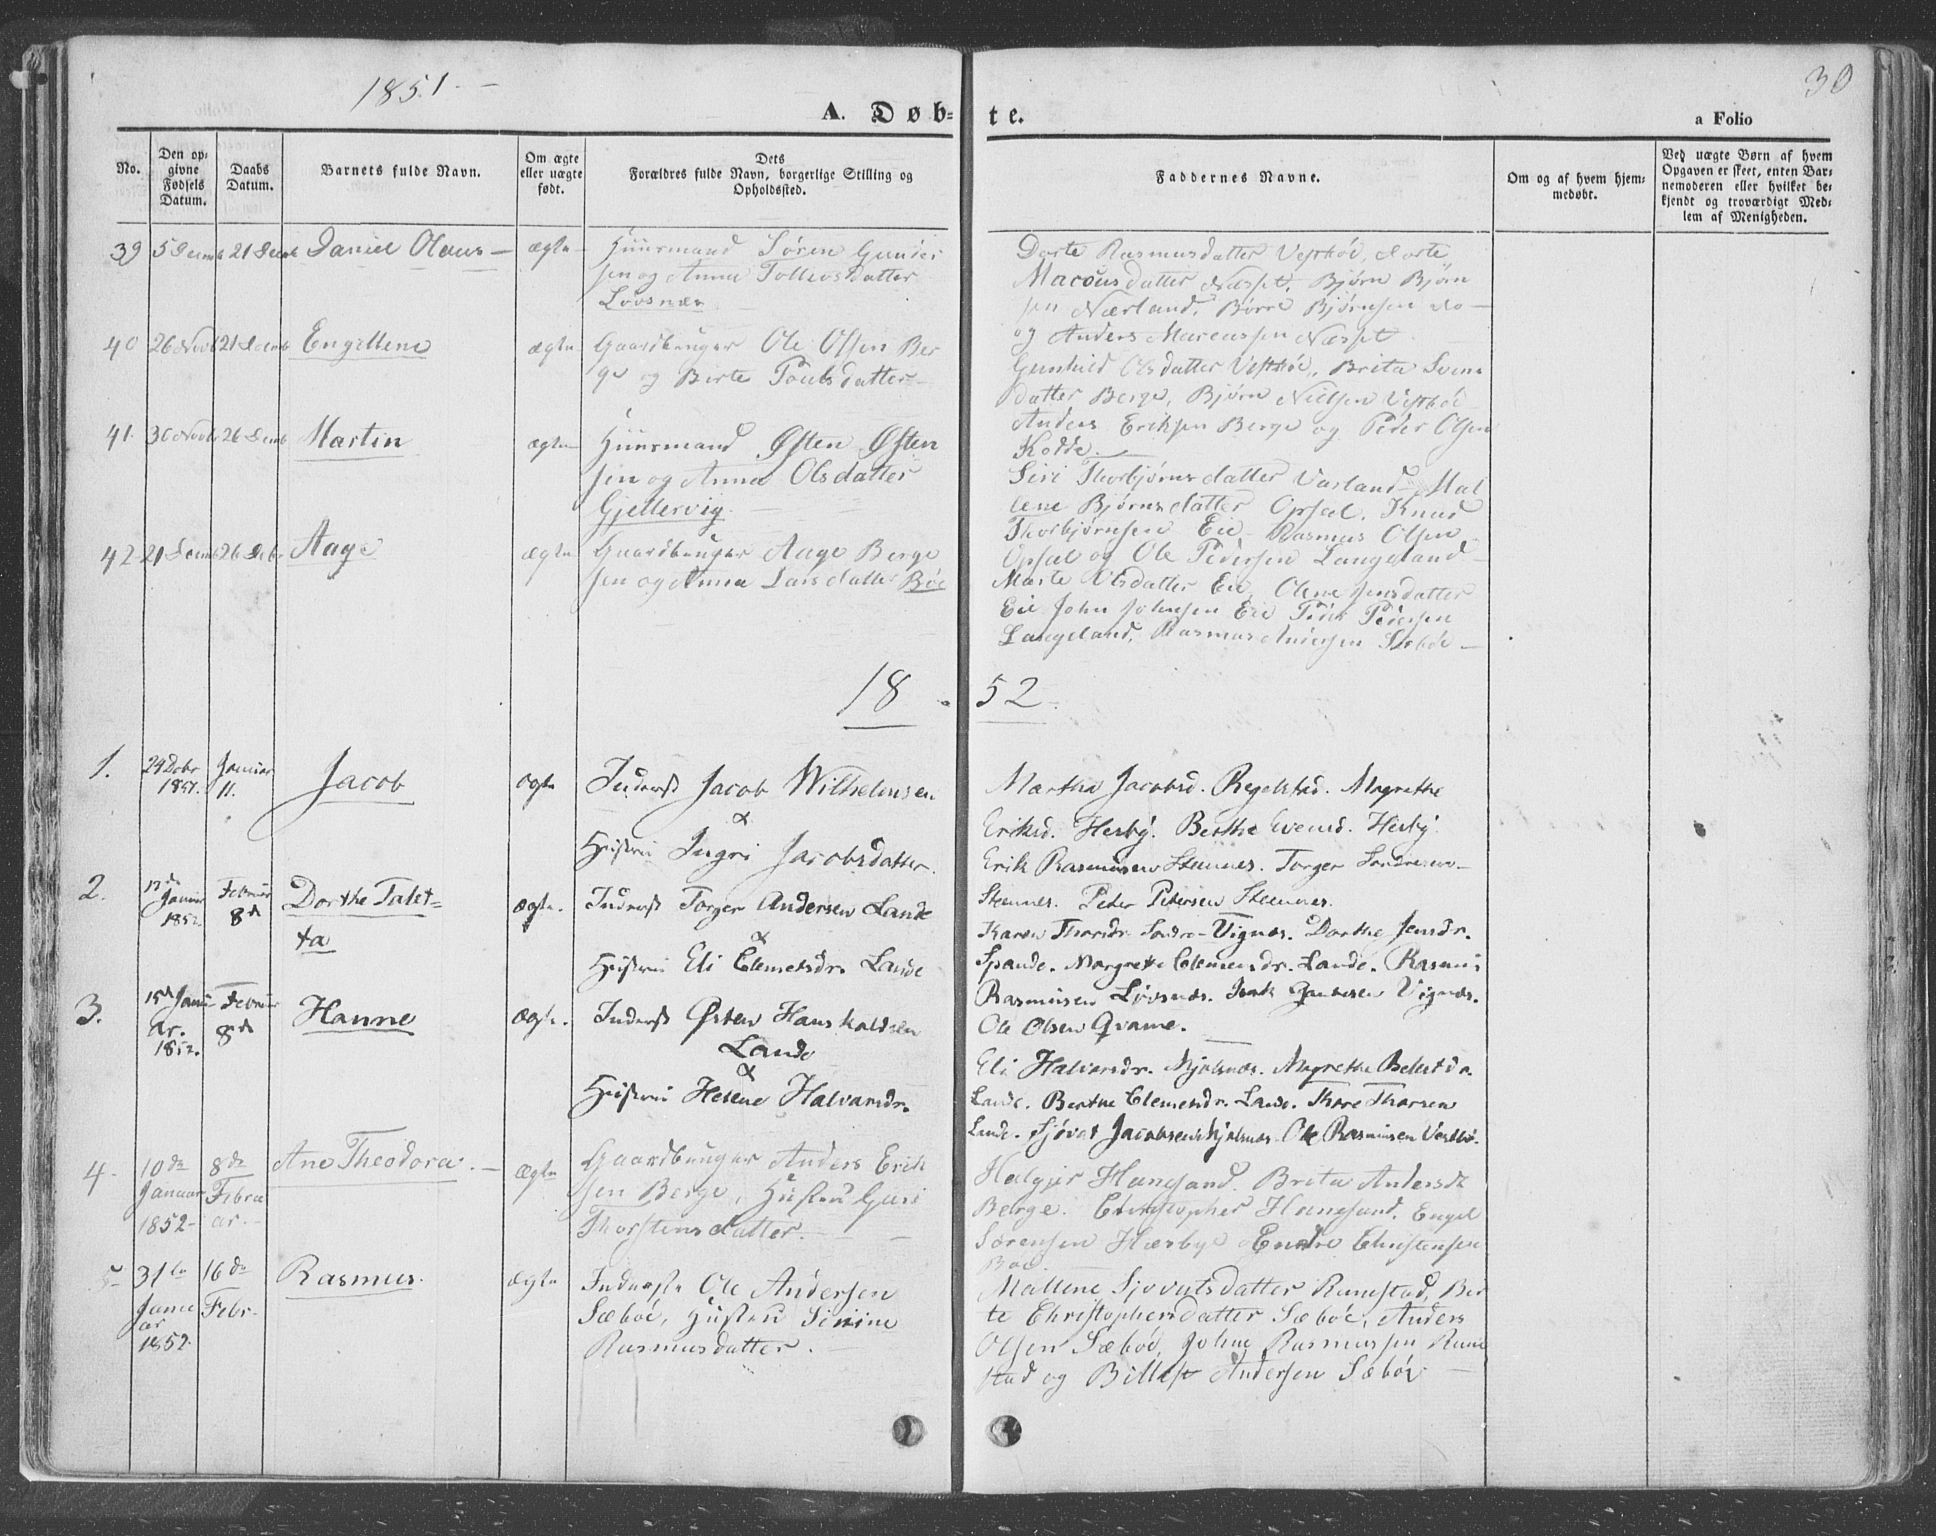 1851.
30
A. Døb-
te.
a Folio
No.
Den op-
givne
Fødsels
Datum.
Daabs
Datum.
Barnets fulde Navn.
Om ægte
eller uægte
født.
Dets
Forældres fulde Navn, borgerlige Stilling og
Opholdssted.
Faddernes Navne.
Om og af hvem hjem-
medøbt.
Ved uægte Børn af hvem
Opgaven er skeet, enten Bar-
nemoderen eller hvilket be-
kjendt og troværdigt Med-
lem af Menigheden.
39 5 Decmb 21 Decmb Daniel Olaus ægte
Huusmand Søren Gunder
sen og Anna Tollevsdatter
Løvsnæs
Dorte Rasmusdatter Vestbøe, Dorte
Marcusdatter Næsset, Bjørn Bjørn
sen Nærland, Børre Bjørnsen do
og Anders Marcussen Næsset
40 26 Novb 21 Decmb Engeline ægte
Gaardbruger Ole Olsen Ber
ge og Birte Poulsdatter
Gunhild Olsdatter Vestbøe, Brita Svens
datter Berge, Bjørn Nielsen Vestbøe
Anders Eriksen Berge og Peder Olsen
Kolde.
41. 30 Novb 26 Decmb Martin ægte
Huusmand Østen Østen
sen og Anna Olsdatter
Gjellervig
Siri Thorbjørnsdatter Varland, Mal
lene Bjørnsdatter Opsal, Knud
Thorbjørnsen Eie, Rasmus Olsen
Opsal og Ole Pedersen Langeland
42 21 Decmb 26 Decbr Aage ægte
Gaardbruger Aage Berge
sen og Anna Larsdatter Bøe
Marte Olsdatter Eie, Olene Jensdatter
Eie John Johnsen Eie Peder Pedersen
Langeland, Rasmus Andersen Sæbøe
18 52
1. 24 Decbr
1851. Januar
11. Jacob ægte
Inderst Jacob Wilhelmsen
&
Hustru Ingri Jacobsdatter.
Martha Jacobsd. Regelstad. Magrethe
Eriksd. Hesby. Berthe Evensd. Hesby.
Erik Rasmusen Stennes. Torger Sondresen
Stennes. Peter Petersen Stennes.
2. 17de
Januar
1852. Februar
8de Dorthe Talet-
ta ægte.
Inderst Torger Andersen Lande
&
Hustru Eli Clemetsdr. Lande
Karen Thorsdr. Søndre-Vignæs. Dorthe Jensdr.
Spande. Margrete Clemensdr. Lande. Rasmus
Rasmusen Løvsnæs. Isak Gautesen Vignæs.
Ole Olsen Qvame.
3. 15de Janu-
ar.
1852. Februar
8de Hanne ægte.
Inderst Østen Hanskaldsen
Lande
&
Hustru Helene Halvorsdr.
Eli Halvorsdr. Mjølsnæs. Magrethe Belestdr.
Lande. Berthe Clemetsdr. Lande. Thore Thorsen
Lande. Sjovat Jacobsen Mjølsnæs. Ole Rasmusen Vestbø.
4. 10de
Januar
1852 8de
Febru
ar. Ane Theodora. ægte
Gaardbruger Anders Erik
sen Berge, Hustru Guri
Thorstensdatter.
Helgjer Hanesand. Brita Andersdt
Berge. Christopher Hanesand. Engel
Sørensen Hæsbye Endre Christensen
Bøe.
5 31te
Janu
ar
1852. 16de
Febr. Rasmus. ægte
Inderste Ole Andersen
Sæbøe, Hustru Sinine
Rasmusdatter.
Mallene Sjovatsdatter Runestad, Ber
te Christophersdatter Sæbøe, Anders
Olsen Sæbøe, Johne Rasmussen Rune
stad og Billest Andersen Sæbøe